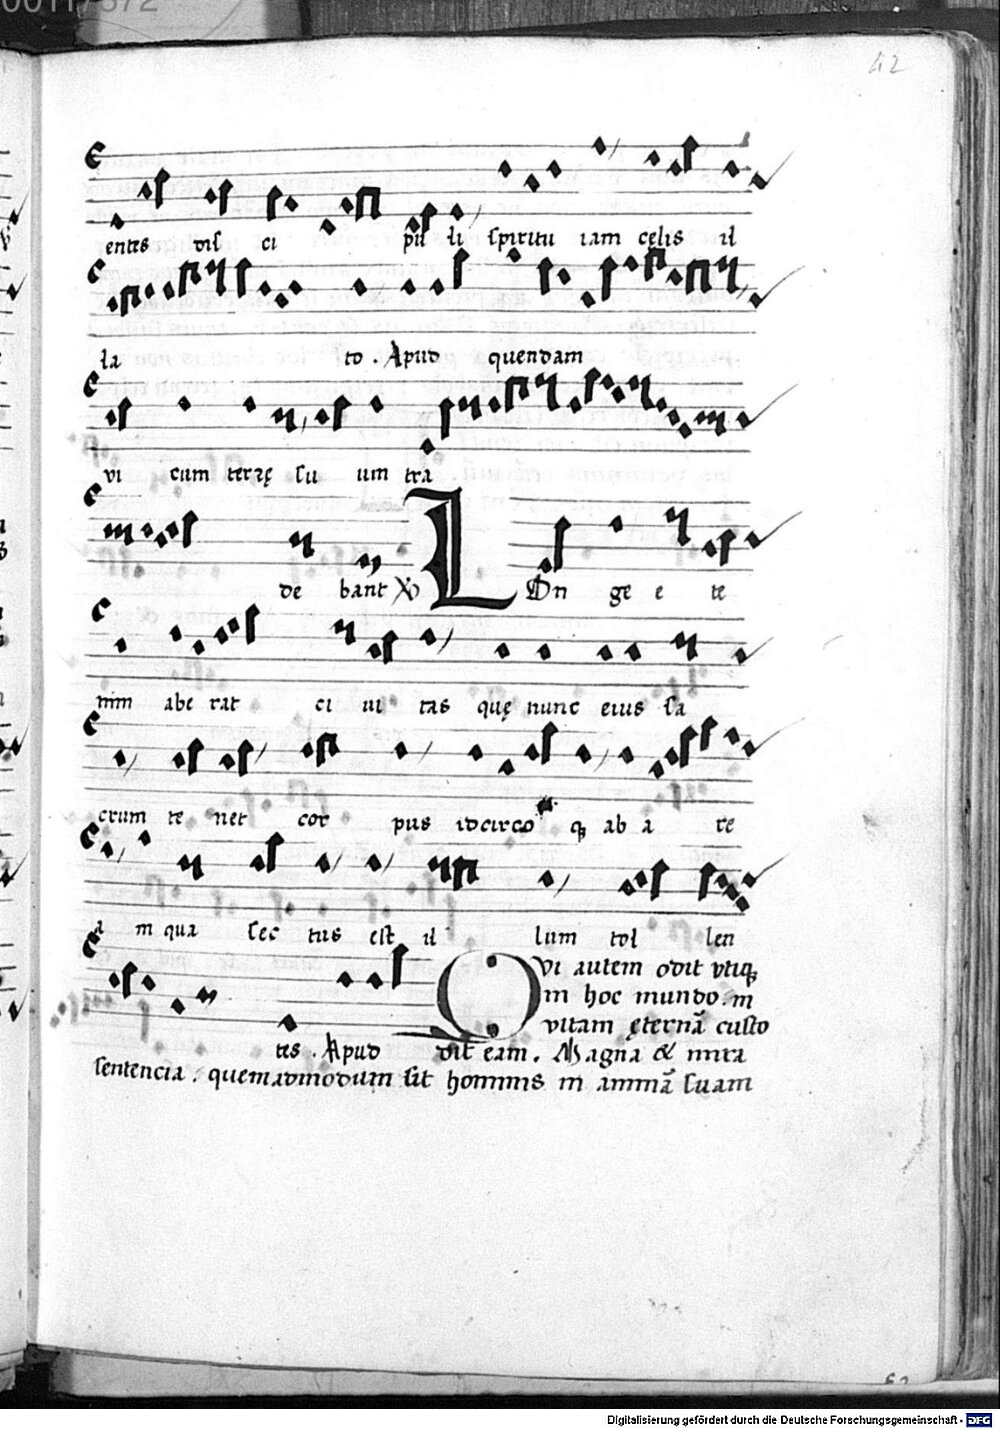 00117372
42
entes dis ci pu li spiritu iam cęlis il
la to . Apud quendam
vi cum terrę su um tra
de bant XP LOn ge e te
nim abe rat ci ui tas quę nunc eius sa
crum te net cor pus idcirco qꝫ ab a re
a in qua sec tus est il lum tol len
tes . Apud QVi autem odit vtiqꝫ
in hoc mundo . in
vitam ęternā custo
dit eam . Magna & mira
sentencia . quemadmodum sit hominis in animā suam
Digitalisierung gefördert durch die Deutsche Forschungsgemeinschaft - DFG